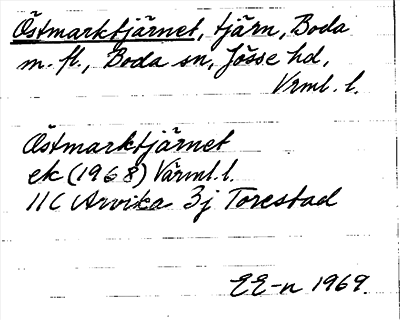 Östmarktjärnet, tjärn, Boda
m. fl., Boda sn, Jösse hd,
Vrml. l.
Östmarktjärnet
ek (1968) Värml. l.
11C Arvika 3j Torestad
EE-n 1969.